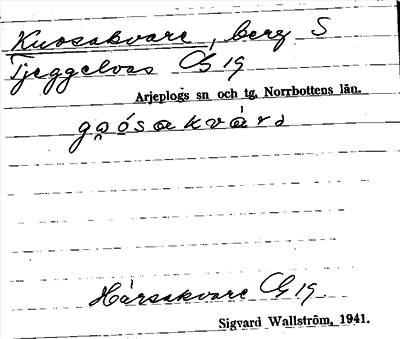 Kuosakvare, berg S
Tjeggelvas CG 19
Arjeplogs sn och tg. Norrbottens län.
Hårsakvare CG 19
Sigvard Wallström, 1941.